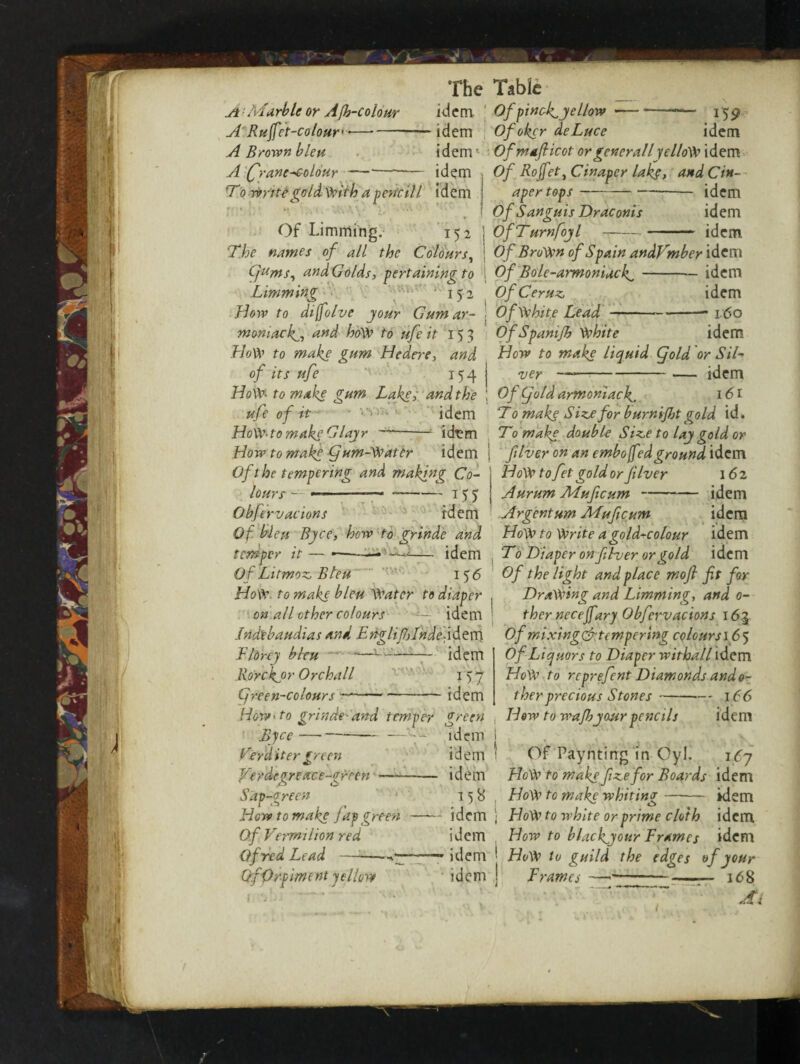 The Table
A Marble or Aſh-colour idem
A Ruſſet-colour —— idem
A Brown bleu idem
A Crane-colour —— idem
To write gold with a pencill idem
Of Limming. 152
The names of all the Colours,
Gums, and Golds, pertaining to
Limming 152
How to diſſolve your Gum ar-
moniack, and how to uſe it 153
How to make gum Hedere, and
of its uſe 154
How to make gum Lake, and the
uſe of it idem
How to make Glayr —— idem
How to make Gum-water idem
Of the tempering and making Co-
lours —— 155
Obſervacions idem
Of bleu Byce, how to grinde and
temper it —— idem
Of Litmoz Bleu 156
How to make bleu water to diaper
on all other colours — idem
Indebaudias and Engliſh Inde. idem
Florey bleu —— idem
Korck or Orchall 157
Green-colours —— idem
How to grinde and temper green
Byce —— idem
Verditer green idem
Verdegreace-green —— idem
Sap-green 158
How to make ſap green —— idem
Of Vermilion red idem
Of red Lead —— idem
Of Orpiment yellow idem
Of pinck yellow —— 159
Of oker de Luce idem
Of maſticot or generall yellow idem
Of Roſſet, Cinaper lake, and Cin-
aper tops —— idem
Of Sanguis Draconis idem
Of Turnſoyl —— idem
Of Brown of Spain and Vmber idem
Of Bole-armoniack —— idem
Of Ceruz idem
Of white Lead —— 160
Of Spaniſh white idem
How to make liquid Gold or Sil-
ver —— idem
Of Gold armoniack 161
To make Size for burniſht gold id.
To make double Size to lay gold or
ſilver on an emboſſed ground idem
How to ſet gold or ſilver 162
Aurum Muſicum —— idem
Argentum Muſicum idem
How to write a gold-colour idem
To Diaper on ſilver or gold idem
Of the light and place moſt fit for
Drawing and Limming, and o-
ther neceſſary Obſervacions 163
Of mixing & tempering colours 165
Of Liquors to Diaper withall idem
How to repreſent Diamonds and o-
ther precious Stones —— 166
How to waſh your pencils idem
Of Paynting in Oyl. 167
How to make ſize for Boards idem
How to make whiting —— idem
How to white or prime cloth idem
How to black your Frames idem
How to guild the edges of your
Frames —— 168